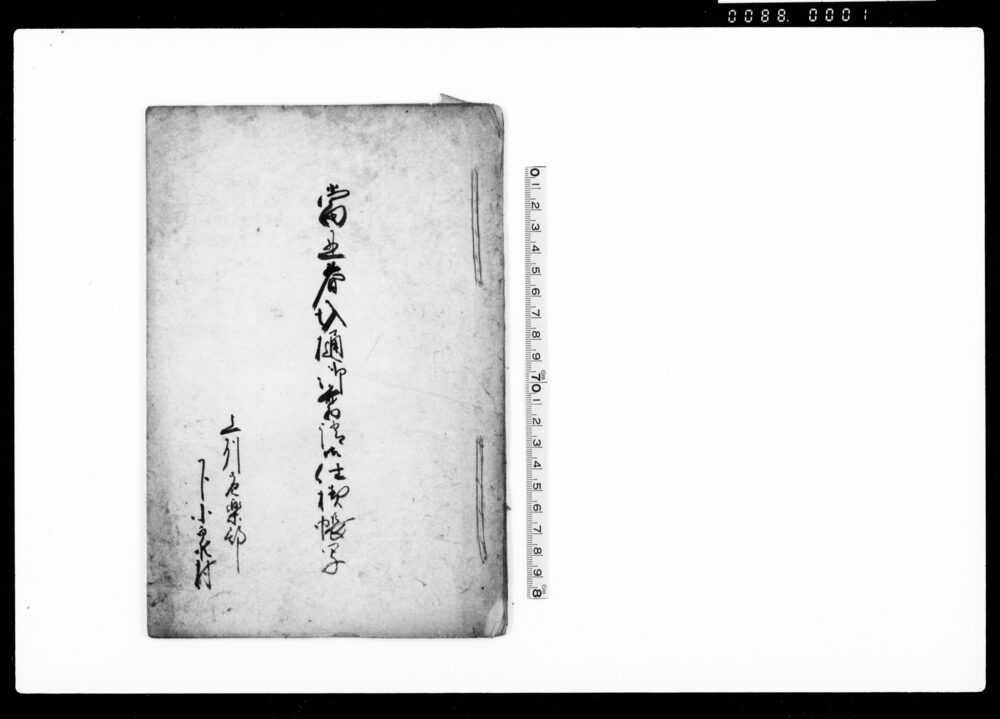 0088. 0001
當丑春圦樋御普請出来仕様帳写
上州邑楽郡
下小泉村
0 1 2 3 4 5 6 7 8 9 10 1 2 3 4 5 6 7 8 9 8